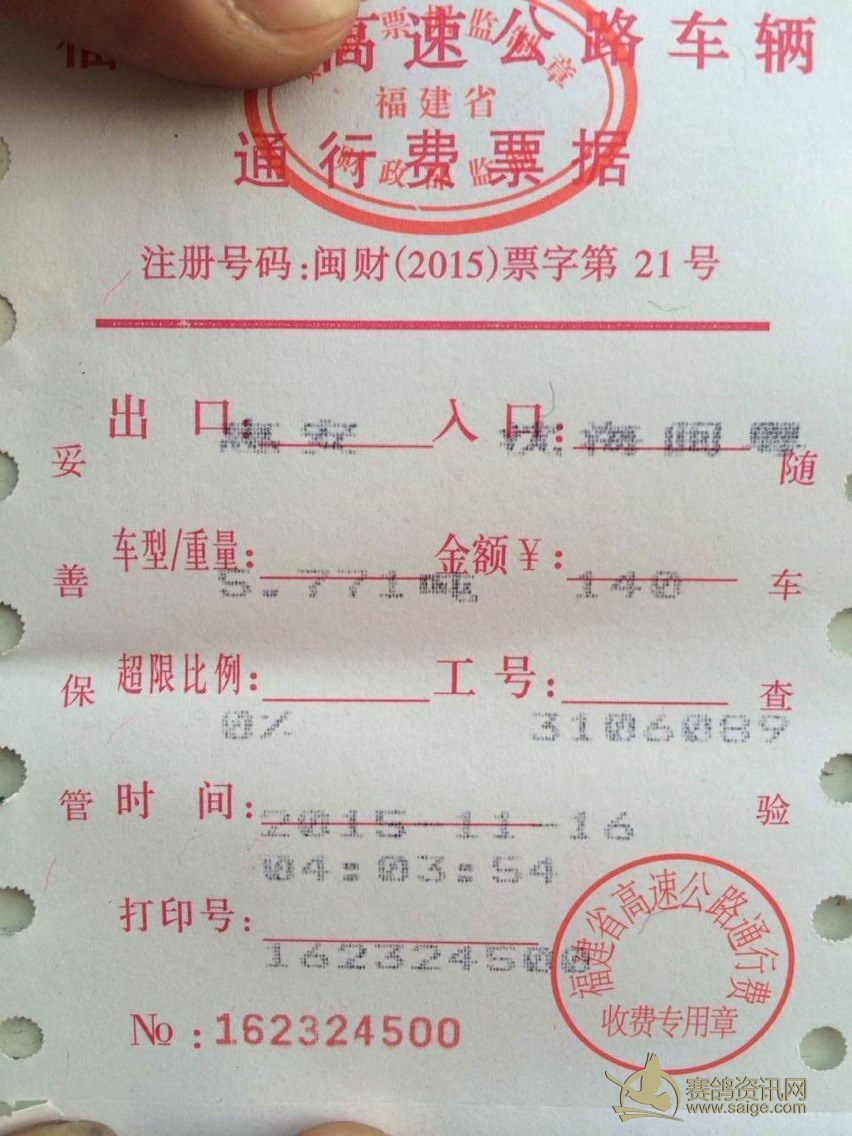 福 高速公路车辆
通行费票据
福建省
财政 监
注册号码:闽财(2015)票字第 21号
出 口: 惠安 入 口: 海闽粤
车型/重量: 5.771吨 金额¥: 140
超限比例: 0% 工 号: 3106089
时 间: 2015-11-16
04:03:54
打印号: 162324500
№:162324500
妥善保管
随车查验
福建省高速公路通行费
收费专用章
赛鸽资讯网
www.saige.com